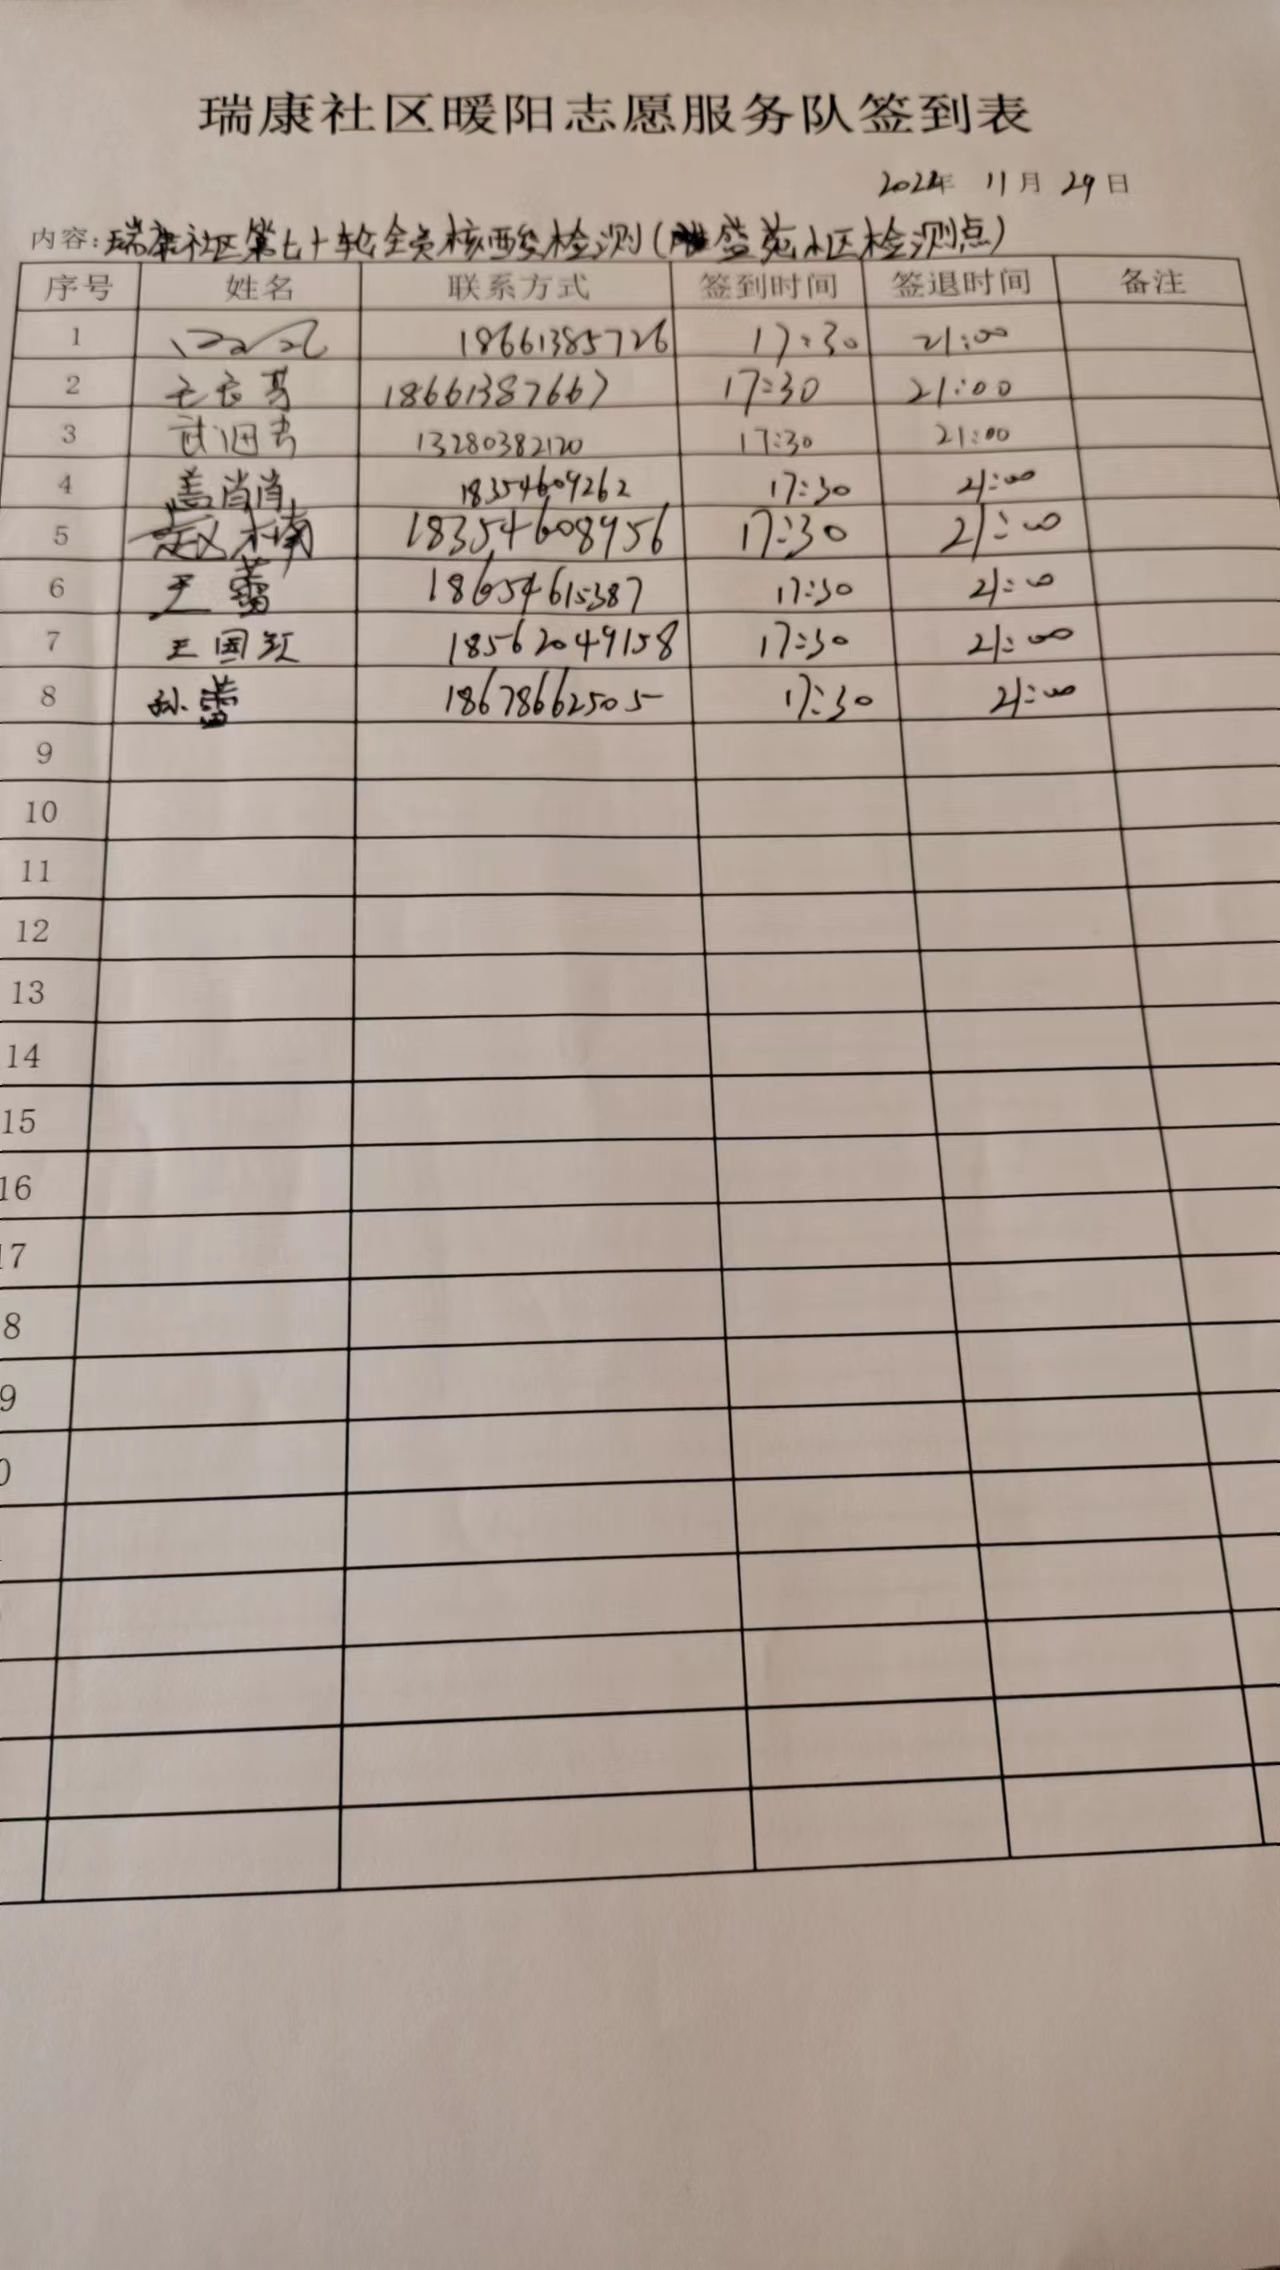 瑞康社区暖阳志愿服务队签到表
2022年 11月 29日
内容:瑞康社区第七十轮全员核酸检测(盛苑小区检测点)
序号 姓名 联系方式 签到时间 签退时间 备注
1 18661385726 17:30 21:00
2 18661387667 17:30 21:00
3 13280382120 17:30 21:00
4 盖肖肖 18354609262 17:30 21:00
5 赵木南 18354608956 17:30 21:00
6 王蕾 18654615387 17:30 21:00
7 王国 18562049158 17:30 21:00
8 孙蕾 18678662505 17:30 21:00
9
10
11
12
13
14
15
16
17
8
9
0